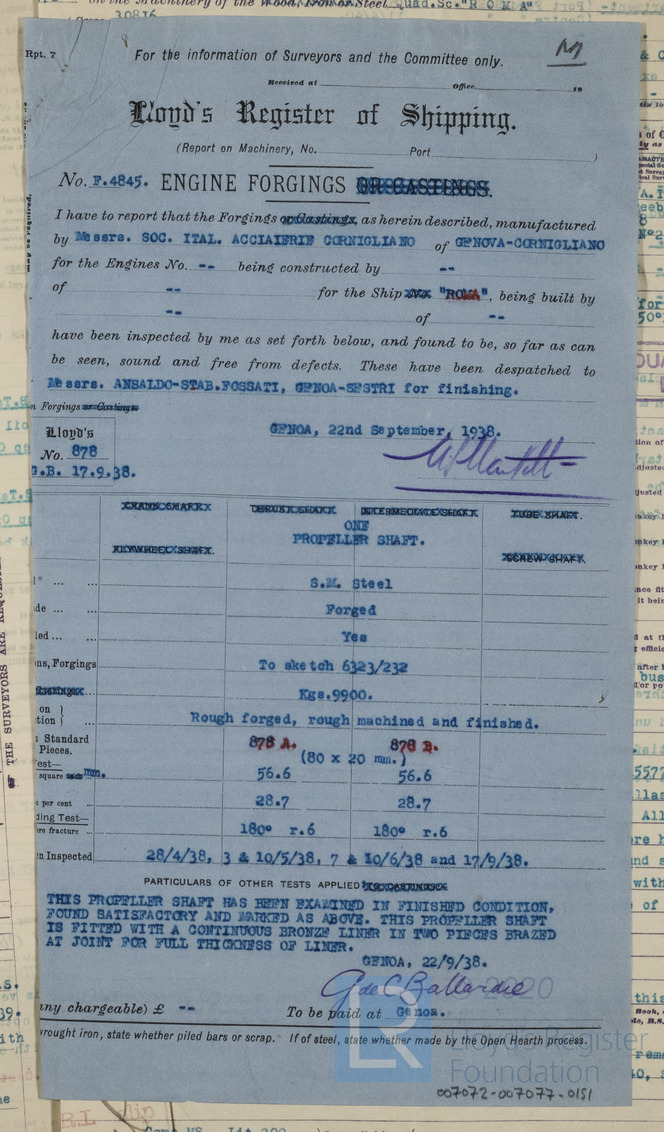 on the Machinery of the Wood, Iron or Steel Quad.Sc."R O M A"
30816
Rpt. 7
For the information of Surveyors and the Committee only.
M
Received at Office, 19
Lloyd's Register of Shipping.
(Report on Machinery, No. Port )
No. F.4845. ENGINE FORGINGS OR CASTINGS.
I have to report that the Forgings or Castings, as herein described, manufactured
by Messrs. SOC. ITAL. ACCIAIERIE CORNIGLIANO of GENOVA-CORNIGLIANO
for the Engines No. -- being constructed by --
of -- for the Ship "ROMA", being built by
-- of --
have been inspected by me as set forth below, and found to be, so far as can
be seen, sound and free from defects. These have been despatched to
Messrs. ANSALDO-STAB.FOSSATI, GENOA-SESTRI for finishing.
n Forgings or Castings
GENOA, 22nd September, 1938.
Lloyd's
No. 878
G.B. 17.9.38.
CRANK SHAFT THRUST SHAFT INTERMEDIATE SHAFT TUBE SHAFT.
ONE
PROPELLER SHAFT.
FLYWHEEL SHAFT. SCREW SHAFT
S.M. Steel
Forged
Yes
ns, Forgings To sketch 6323/232
Kgs.9900.
on
tion } Rough forged, rough machined and finished.
Standard
Pieces. 878 A. 878 B.
(80 x 20 mm.)
square mm. 56.6 56.6
per cent 28.7 28.7
ding Test—
re fracture 180° r.6 180° r.6
n Inspected 28/4/38, 3 & 10/5/38, 7 & 10/6/38 and 17/9/38.
PARTICULARS OF OTHER TESTS APPLIED TO CASTINGS
THIS PROPELLER SHAFT HAS BEEN EXAMINED IN FINISHED CONDITION,
FOUND SATISFACTORY AND MARKED AS ABOVE. THIS PROPELLER SHAFT
IS FITTED WITH A CONTINUOUS BRONZE LINER IN TWO PIECES BRAZED
AT JOINT FOR FULL THICKNESS OF LINER.
GENOA, 22/9/38.
G de C Ballardie
2020
any chargeable) £ -- To be paid at Genoa.
wrought iron, state whether piled bars or scrap. If of steel, state whether made by the Open Hearth process.
LR
Lloyd's Register
Foundation
007072-007077-0151
THE SURVEYORS ARE REQUES
may be required.